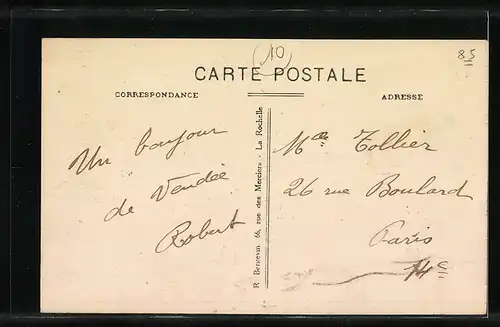 10
85
CARTE POSTALE
CORRESPONDANCE
ADRESSE
Un bonjour
de Vendée
Robert
R. Bergevin, 66, rue des Merciers - La Rochelle
Melle Tollier
26 rue Boulard
Paris
14e